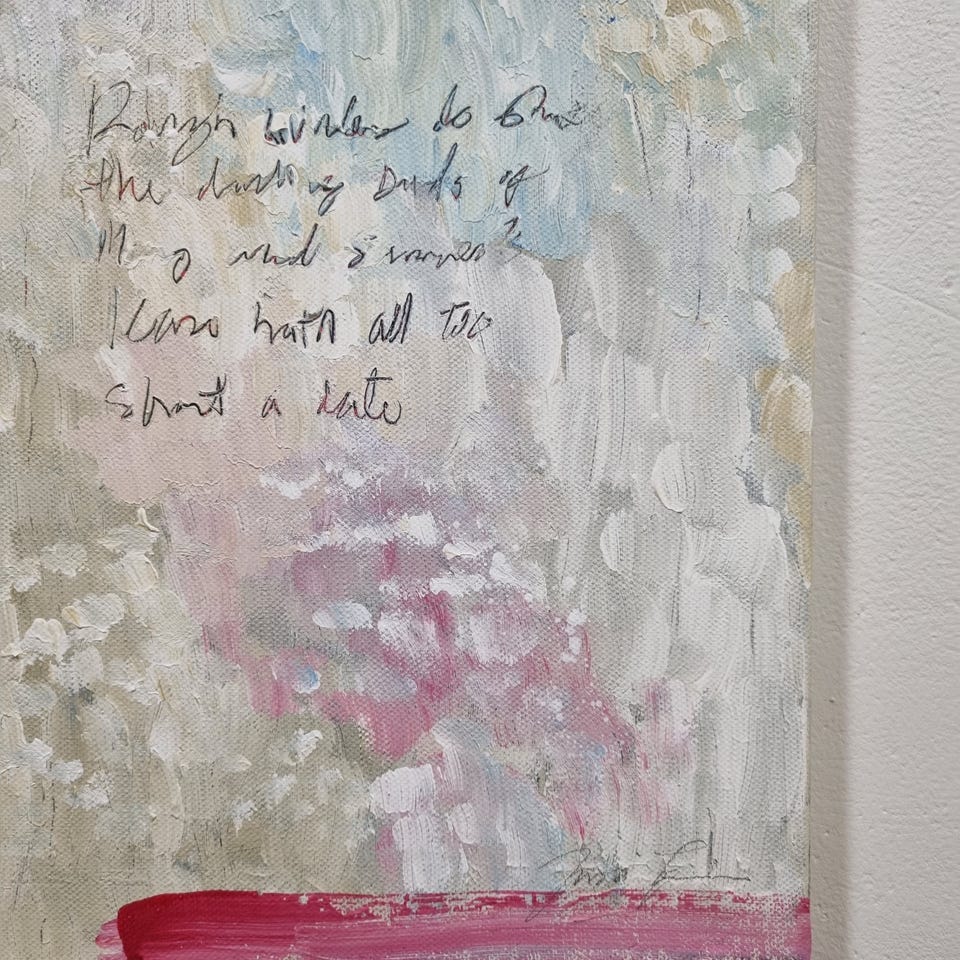 Rough winds do shake
the darling buds of
May and summer's
lease hath all too
short a date